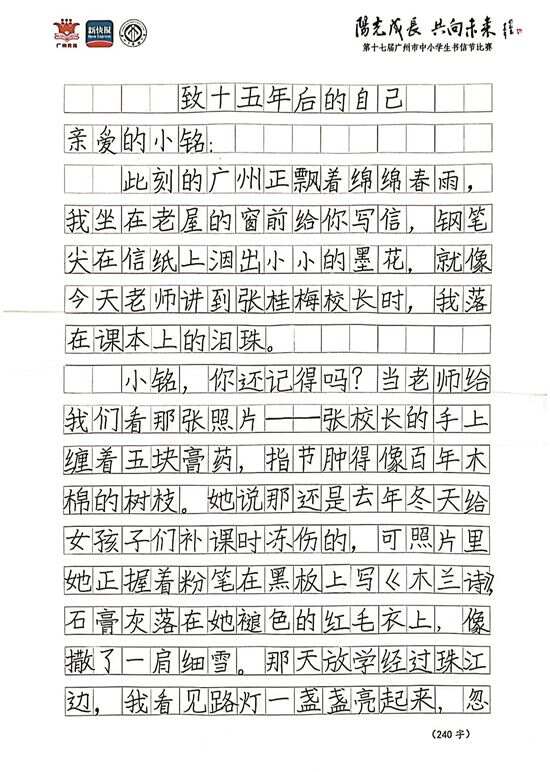 广州共青团
新快报
New Express
陽光成長 共向未来
第十七届广州市中小学生书信节比赛
致十五年后的自己
亲爱的小铭:
此刻的广州正飘着绵绵春雨,
我坐在老屋的窗前给你写信,钢笔
尖在信纸上洇出小小的墨花,就像
今天老师讲到张桂梅校长时,我落
在课本上的泪珠。
小铭,你还记得吗?当老师给
我们看那张照片——张校长的手上
缠着五块膏药,指节肿得像百年木
棉的树枝。她说那还是去年冬天给
女孩子们补课时冻伤的,可照片里
她正握着粉笔在黑板上写《木兰诗》,
石膏灰落在她褪色的红毛衣上,像
撒了一肩细雪。那天放学经过珠江
边,我看见路灯一盏盏亮起来,忽
(240字)